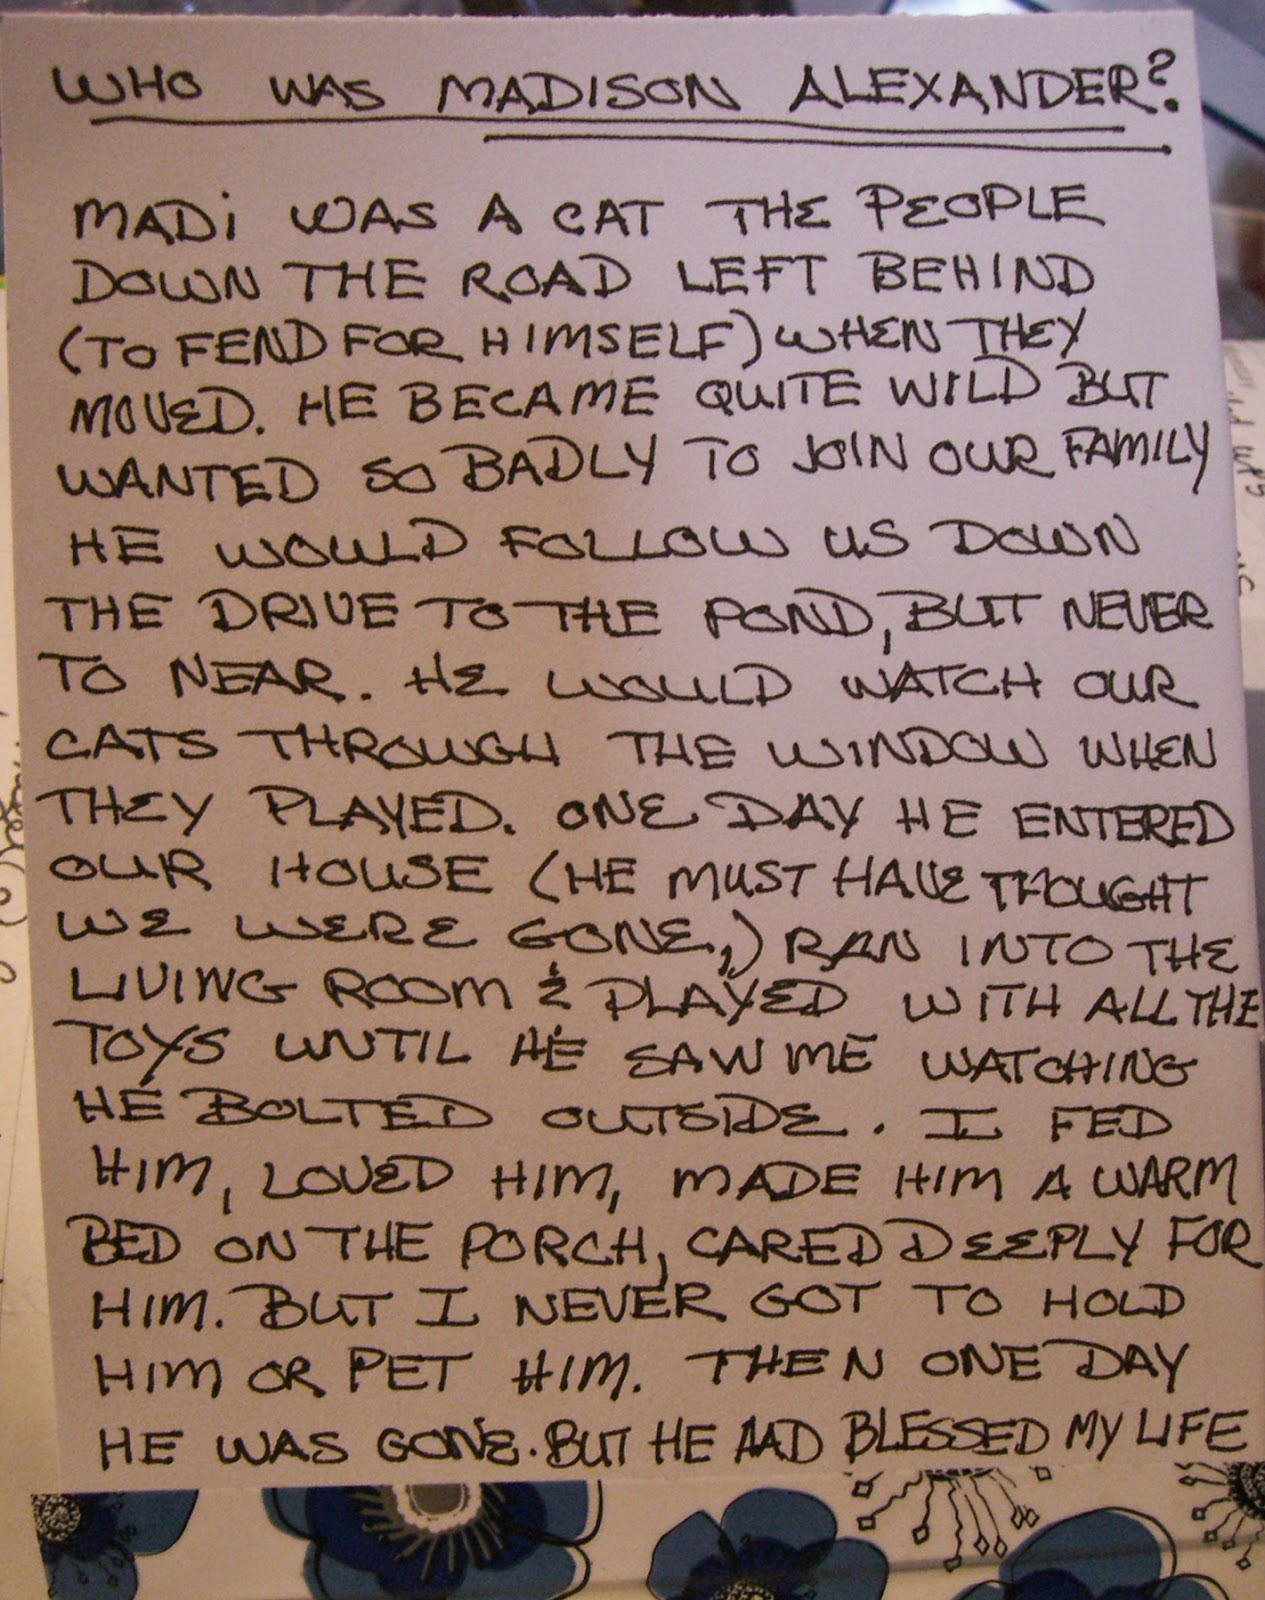 WHO WAS MADISON ALEXANDER?
MADi WAS A CAT THE PEOPLE
DOWN THE ROAD LEFT BEHIND
(TO FEND FOR HIMSELF) WHEN THEY
MOVED. HE BECAME QUITE WILD BUT
WANTED SO BADLY TO JOIN OUR FAMILY
HE WOULD FOLLOW US DOWN
THE DRIVE TO THE POND, BUT NEVER
TO NEAR. HE WOULD WATCH OUR
CATS THROUGH THE WINDOW WHEN
THEY PLAYED. ONE DAY HE ENTERED
OUR HOUSE (HE MUST HAVE THOUGHT
WE WERE GONE,) RAN INTO THE
LIVING ROOM & PLAYED WITH ALL THE
TOYS UNTIL HE SAW ME WATCHING
HE BOLTED OUTSIDE. I FED
HIM, LOVED HIM, MADE HIM A WARM
BED ON THE PORCH, CARED DEEPLY FOR
HIM. BUT I NEVER GOT TO HOLD
HIM OR PET HIM. THEN ONE DAY
HE WAS GONE. BUT HE HAD BLESSED MY LIFE